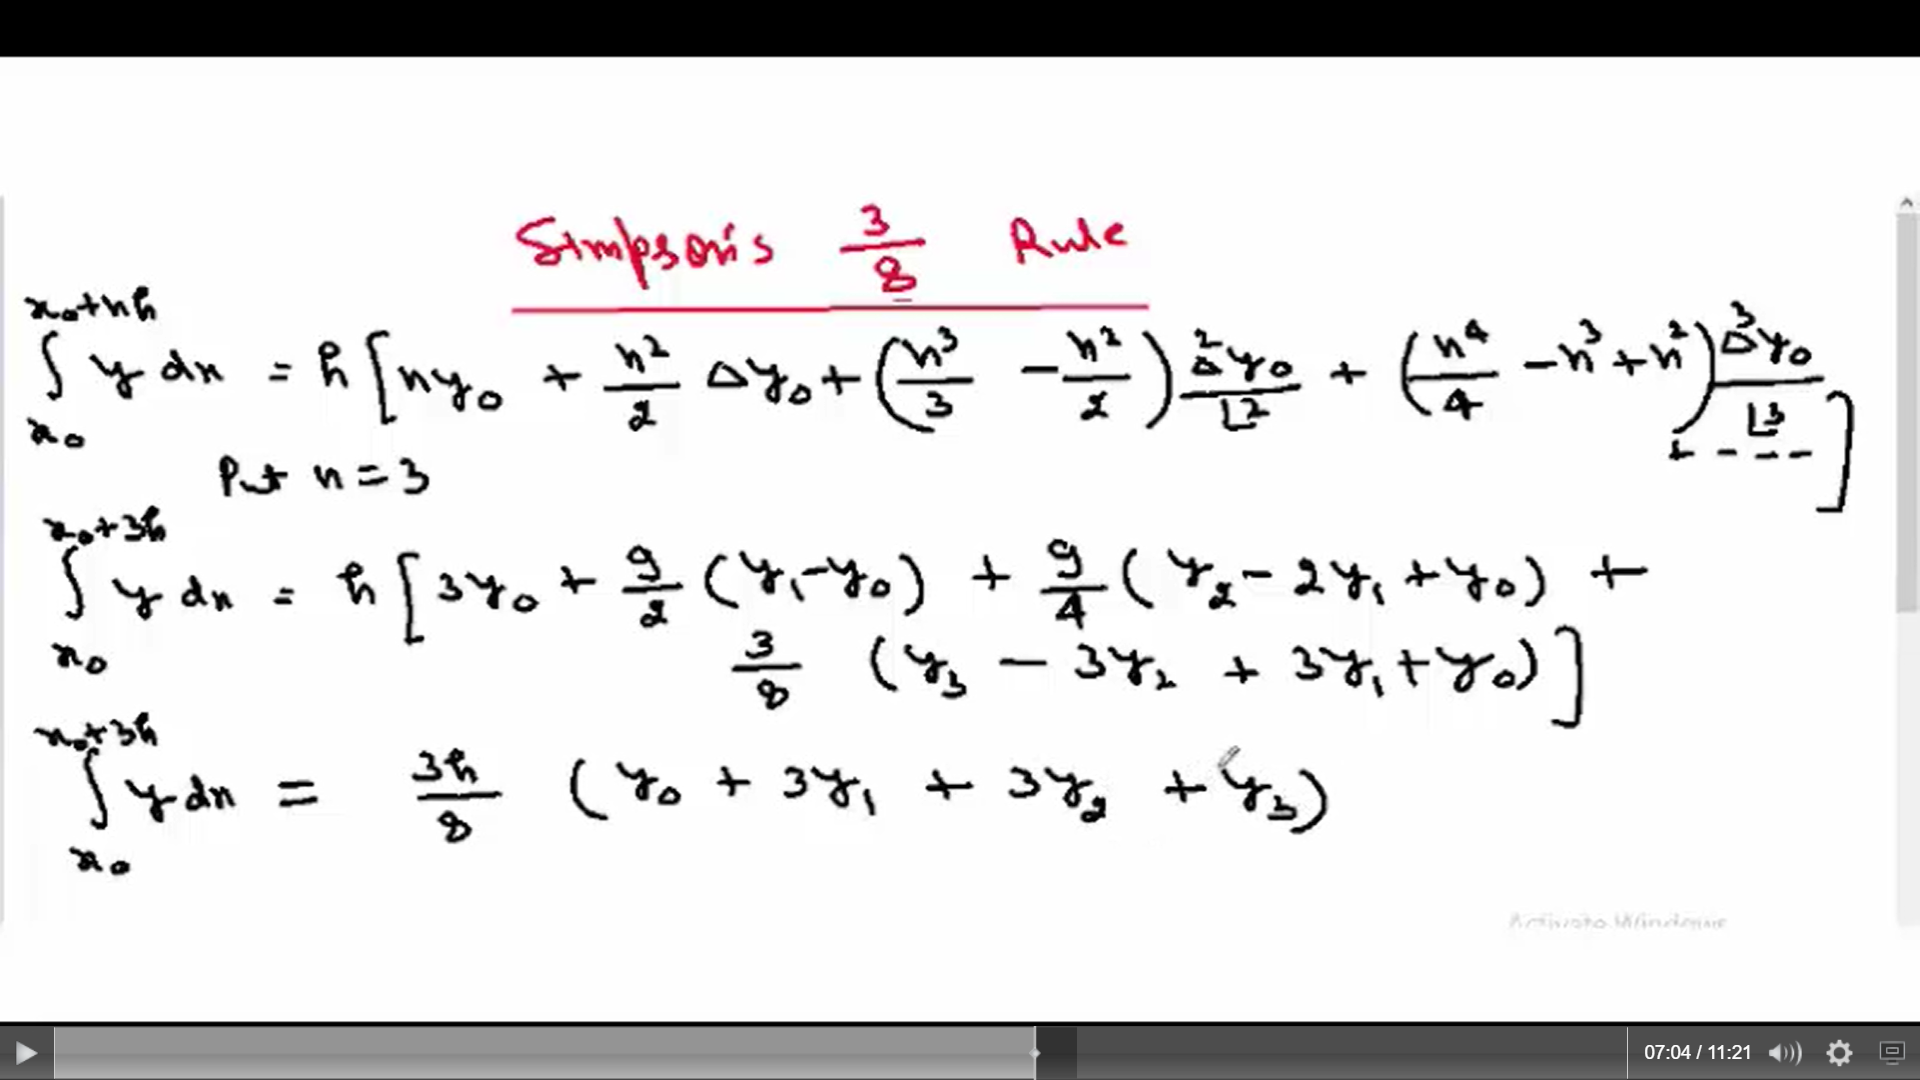 Simpson's 3/8 Rule
∫_{x₀}^{x₀+nh} y dx = h [ny₀ + n²/2 Δy₀ + (n³/3 - n²/2) Δ²y₀/⌊2 + (n⁴/4 - n³ + n²) Δ³y₀/⌊3
+ - - - ]
Put n = 3
∫_{x₀}^{x₀+3h} y dx = h [3y₀ + 9/2 (y₁-y₀) + 9/4 (y₂ - 2y₁ + y₀) +
3/8 (y₃ - 3y₂ + 3y₁ + y₀)]
∫_{x₀}^{x₀+3h} y dx = 3h/8 (y₀ + 3y₁ + 3y₂ + y₃)
Activate Windows
07:04 / 11:21